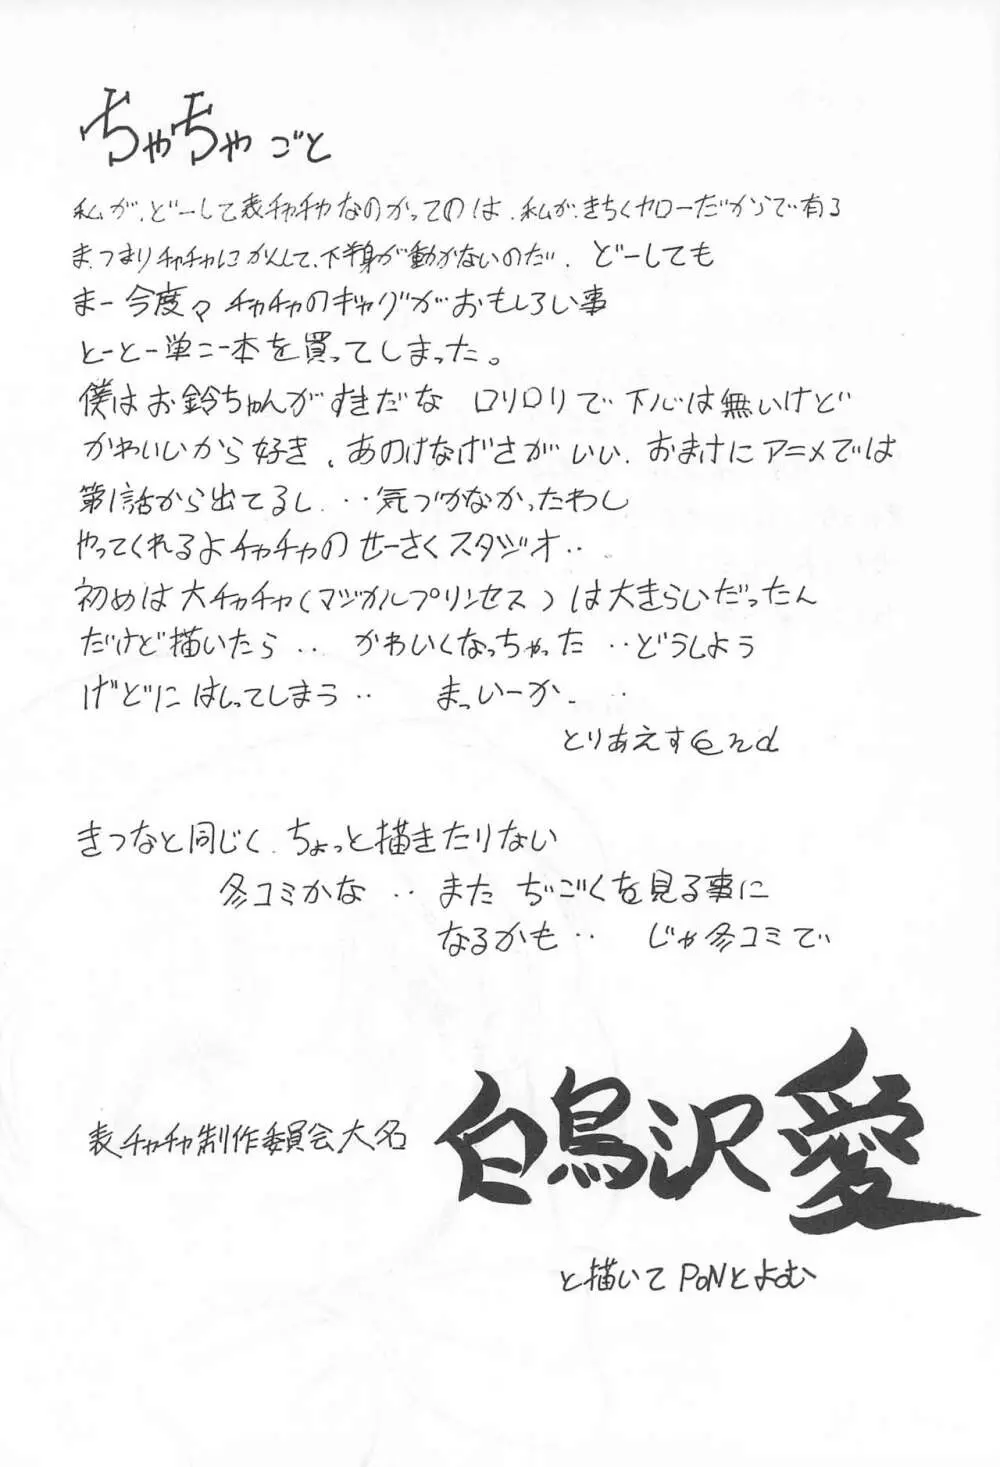 ちゃちゃごと
私が、どーして表チャチャなのかってのは、私が、きちくヤローだからで有る
ま、つまりチャチャにかんして、下半身が動かないのだ、どーしても
まー今度々チャチャのギャグがおもしろい事
とーとー単こー本を買ってしまった。
僕はお鈴ちゃんがすきだな ロリロリで下心は無いけど
かわいいから好き、あのけなげさがいい、おまけにアニメでは
第1話から出てるし、‥気づかなかったわし
やってくれるよチャチャのせーさくスタジオ‥
初めは大チャチャ(マジカルプリンセス)は大きらいだったん
だけど描いたら‥ かわいくなっちゃった‥どうしよう
げどにはしってしまう‥ まっいーか、‥
とりあえすend
きつなと同じく、ちょっと描きたりない
冬コミかな‥またぢごくを見る事に
なるかも‥ じゃ冬コミで
表チャチャ制作委員会大名
白鳥沢愛
と描いてPoNとよむ